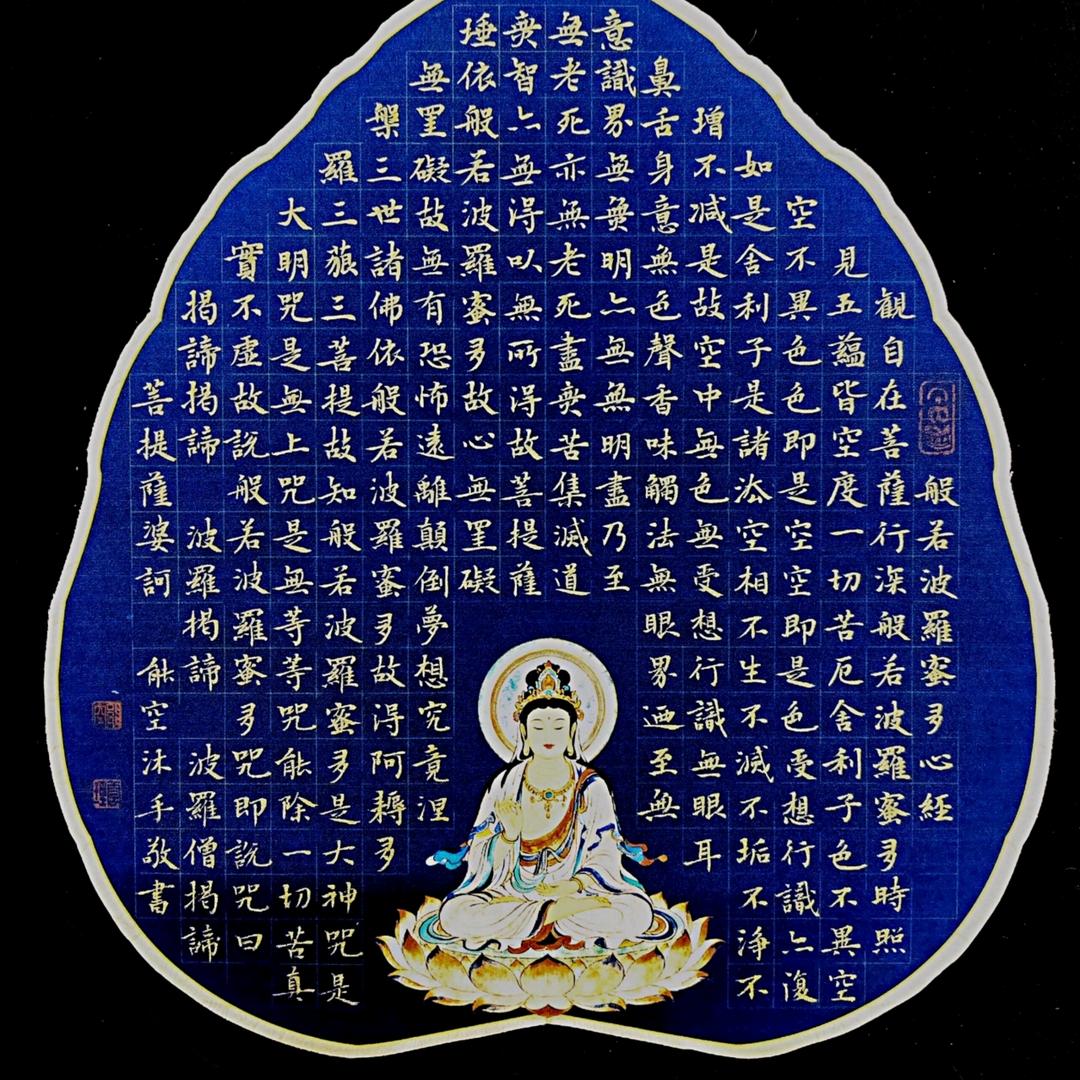 般若波羅蜜多心經
觀自在菩薩行深般若波羅蜜多時照
見五蘊皆空度一切苦厄舍利子色不異空
空不異色色即是空空即是色受想行識亦復
如是舍利子是諸法空相不生不滅不垢不淨不
增不减是故空中無色無受想行識無眼耳
鼻舌身意無色聲香味觸法無眼界迺至無
意識界無無明亦無無明盡乃至
無老死亦無老死盡無苦集滅道
無智亦無得以無所得故菩提薩
埵依般若波羅蜜多故心無罣礙
無罣礙故無有恐怖遠離顛倒夢想究竟涅
槃三世諸佛依般若波羅蜜多故得阿耨多
羅三藐三菩提故知般若波羅蜜多是大神咒是
大明咒是無上咒是無等等咒能除一切苦真
實不虛故説般若波羅蜜多咒即説咒曰
揭諦揭諦 波羅揭諦 波羅僧揭諦
菩提薩婆訶 能空沐手敬書